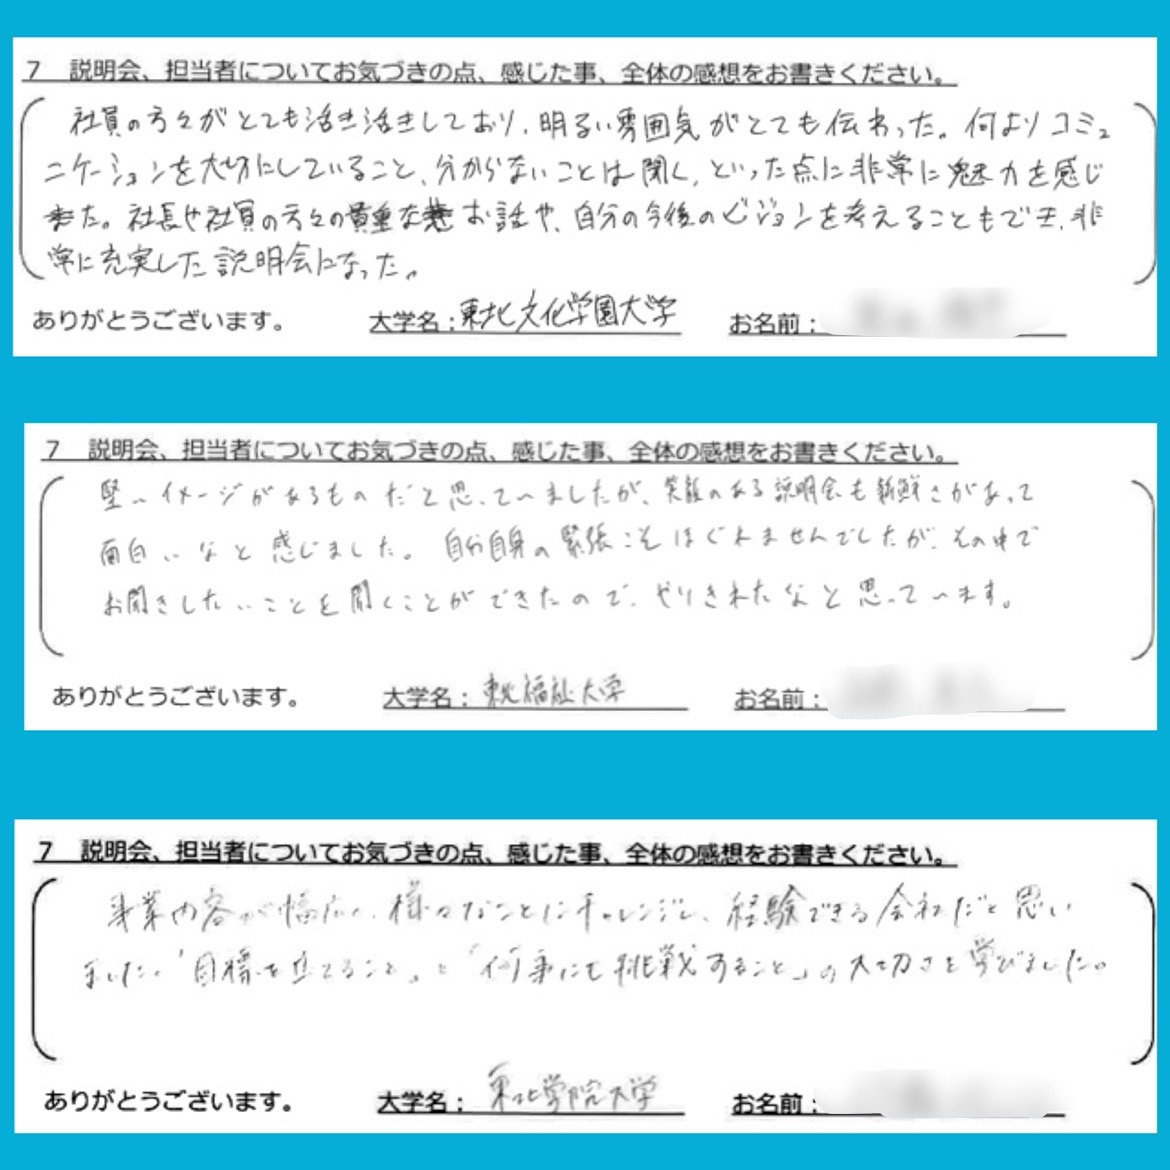 7 説明会、担当者についてお気づきの点、感じた事、全体の感想をお書きください。
社員の方々がとても活き活きしており、明るい雰囲気がとても伝わった。何よりコミュ
ニケーションを大切にしていること、分からないことは聞く、といった点に非常に魅力を感じ
また。社長や社員の方々の貴重な お話や、自分の今後のビジョンを考えることもでき、非
常に充実した説明会になった。
ありがとうございます。 大学名:東北文化学園大学 お名前:
7 説明会、担当者についてお気づきの点、感じた事、全体の感想をお書きください。
堅いイメージがあるものだと思っていましたが、笑顔のある説明会も新鮮さがあって
面白いなと感じました。自分自身の緊張こそほぐれませんでしたが、その中で
お聞きしたいことを聞くことができたので、やりきれたなと思っています。
ありがとうございます。 大学名:東北福祉大学 お名前:
7 説明会、担当者についてお気づきの点、感じた事、全体の感想をお書きください。
事業内容が幅広く、様々なことにチャレンジし、経験できる会社だと思い
ました。「目標を立てること」と「何事にも挑戦すること」の大切さを学びました。
ありがとうございます。 大学名:東北学院大学 お名前: